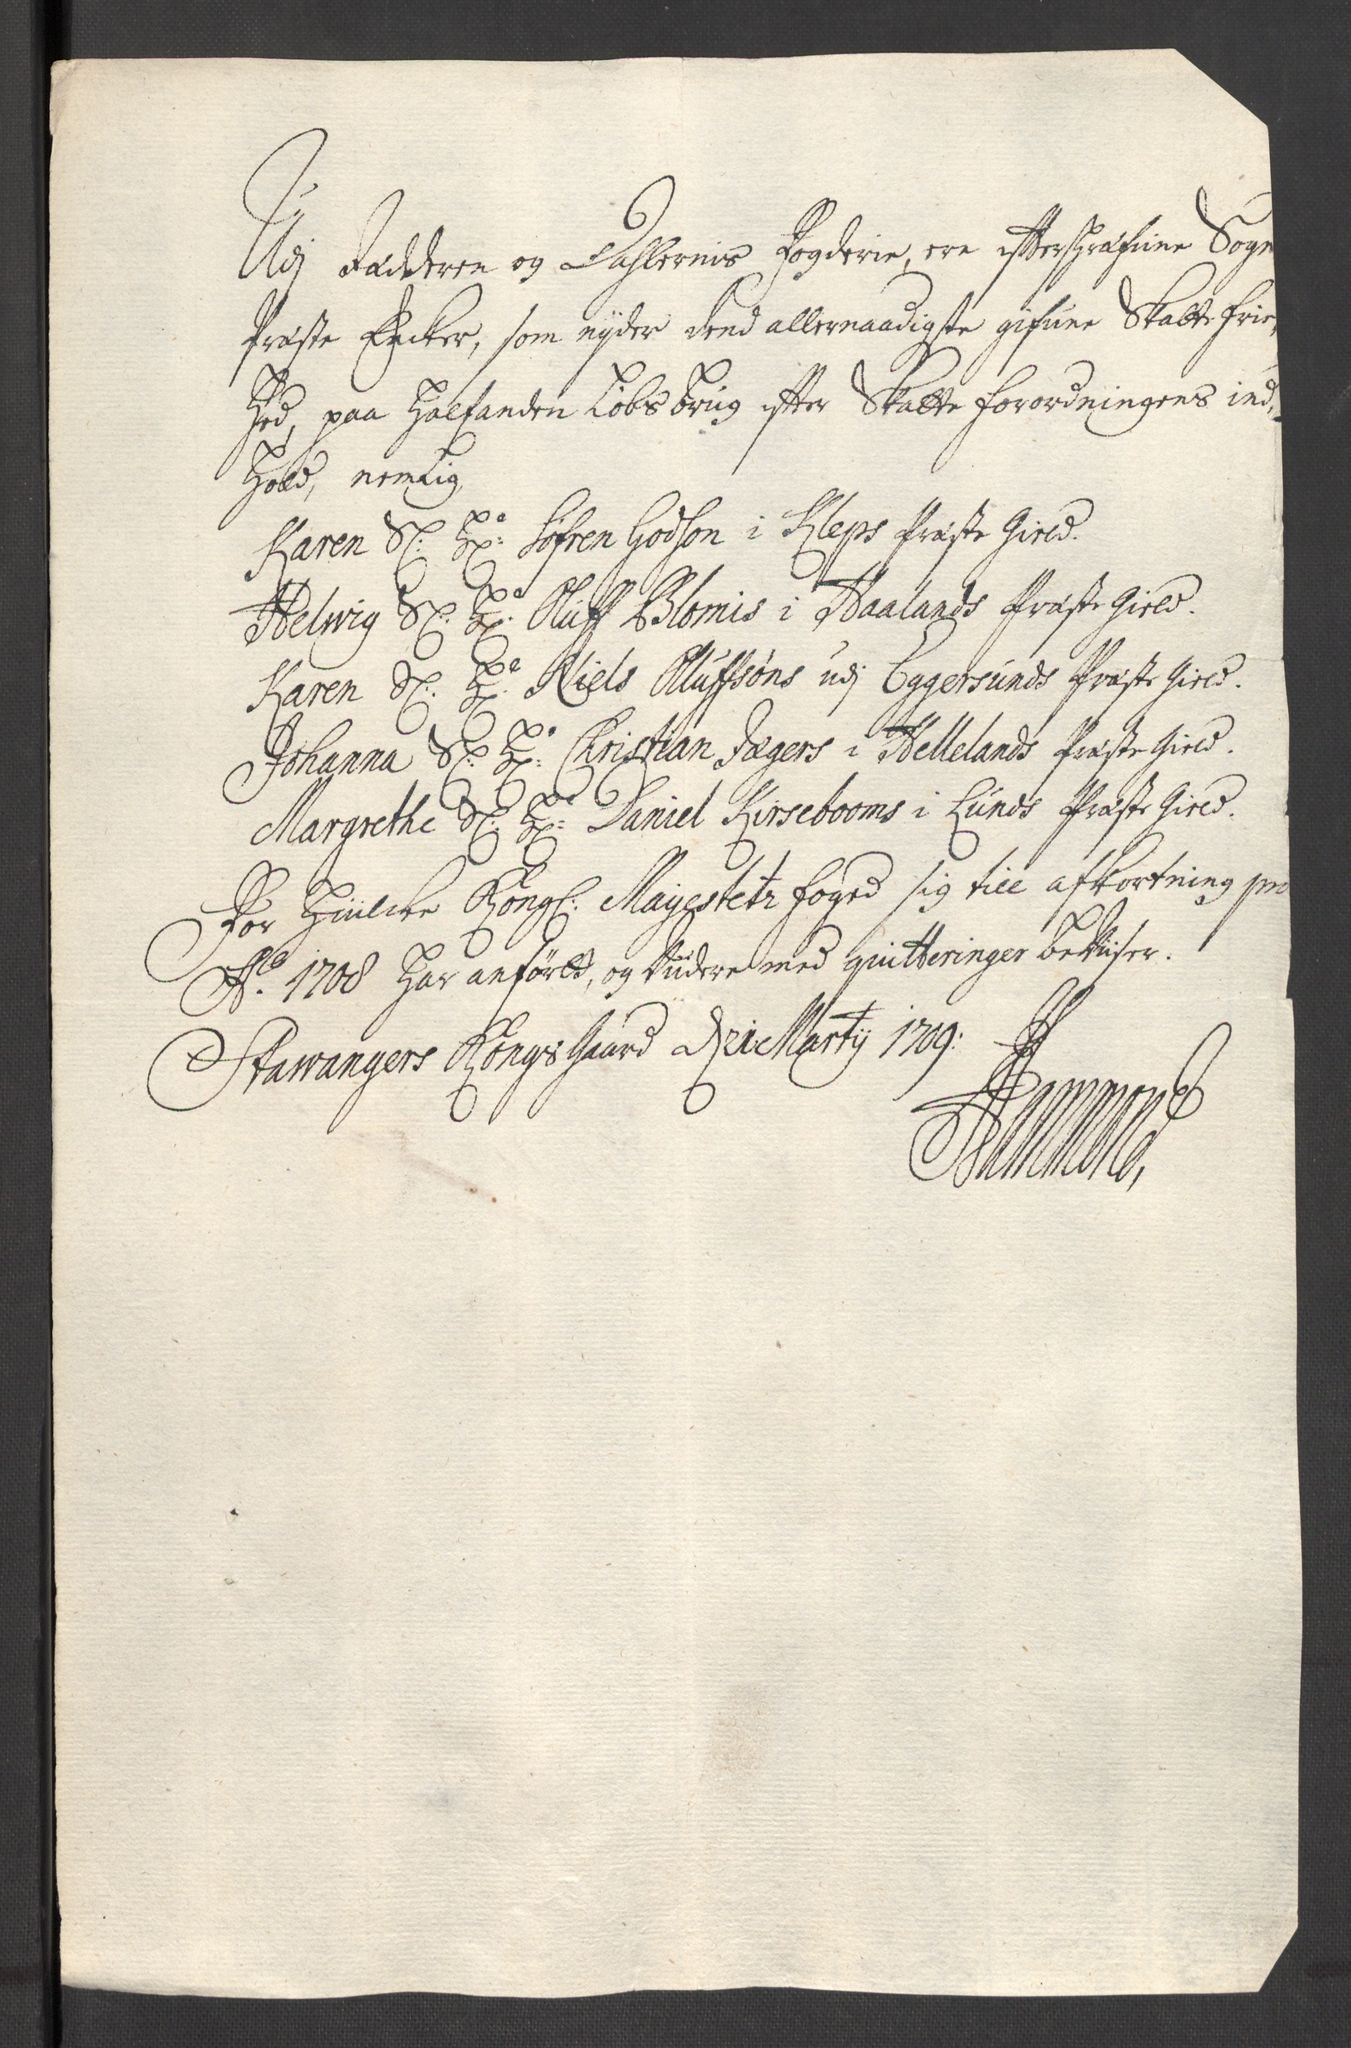 Udj Jædderen og Dahlernis Fogderie, ere effterschrefune Sogne
Præste Encker, som nyder dend allernaadigste gifune Skatte frie,
Hed, paa Halfanden Løbs brug effter Skatte forordningens ind,
Hold, nemlig
Karen Sl: Hr: Søfren Godson i Kleps Præste Gield.
Helwig Sl: Hr: Oluff Blomis i Haalands Præste Gield.
Karen Sl: Hr: Niels Oluffsøns udj Eggersunds Præste Gield.
Johanna Sl: Hr: Christian Jægers i Hellelands Præste Gield.
Margrethe Sl: Hr: Daniel Kirsebooms i Lunds Præste Gield.
For Huilcke Kongl: Mayestetz foged sig till afkortning pro
Ao. 1708 Har anført, og videre med quitteringer beviser.
Stawangers Kongsgaard d: 21 Martij 1709:
Hammond,